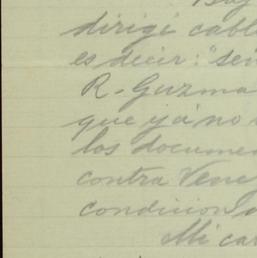 dirigí cabl
es decir: "sei
R. Guzma
que yá no
los documen
contra Vene
condicion
Mi car